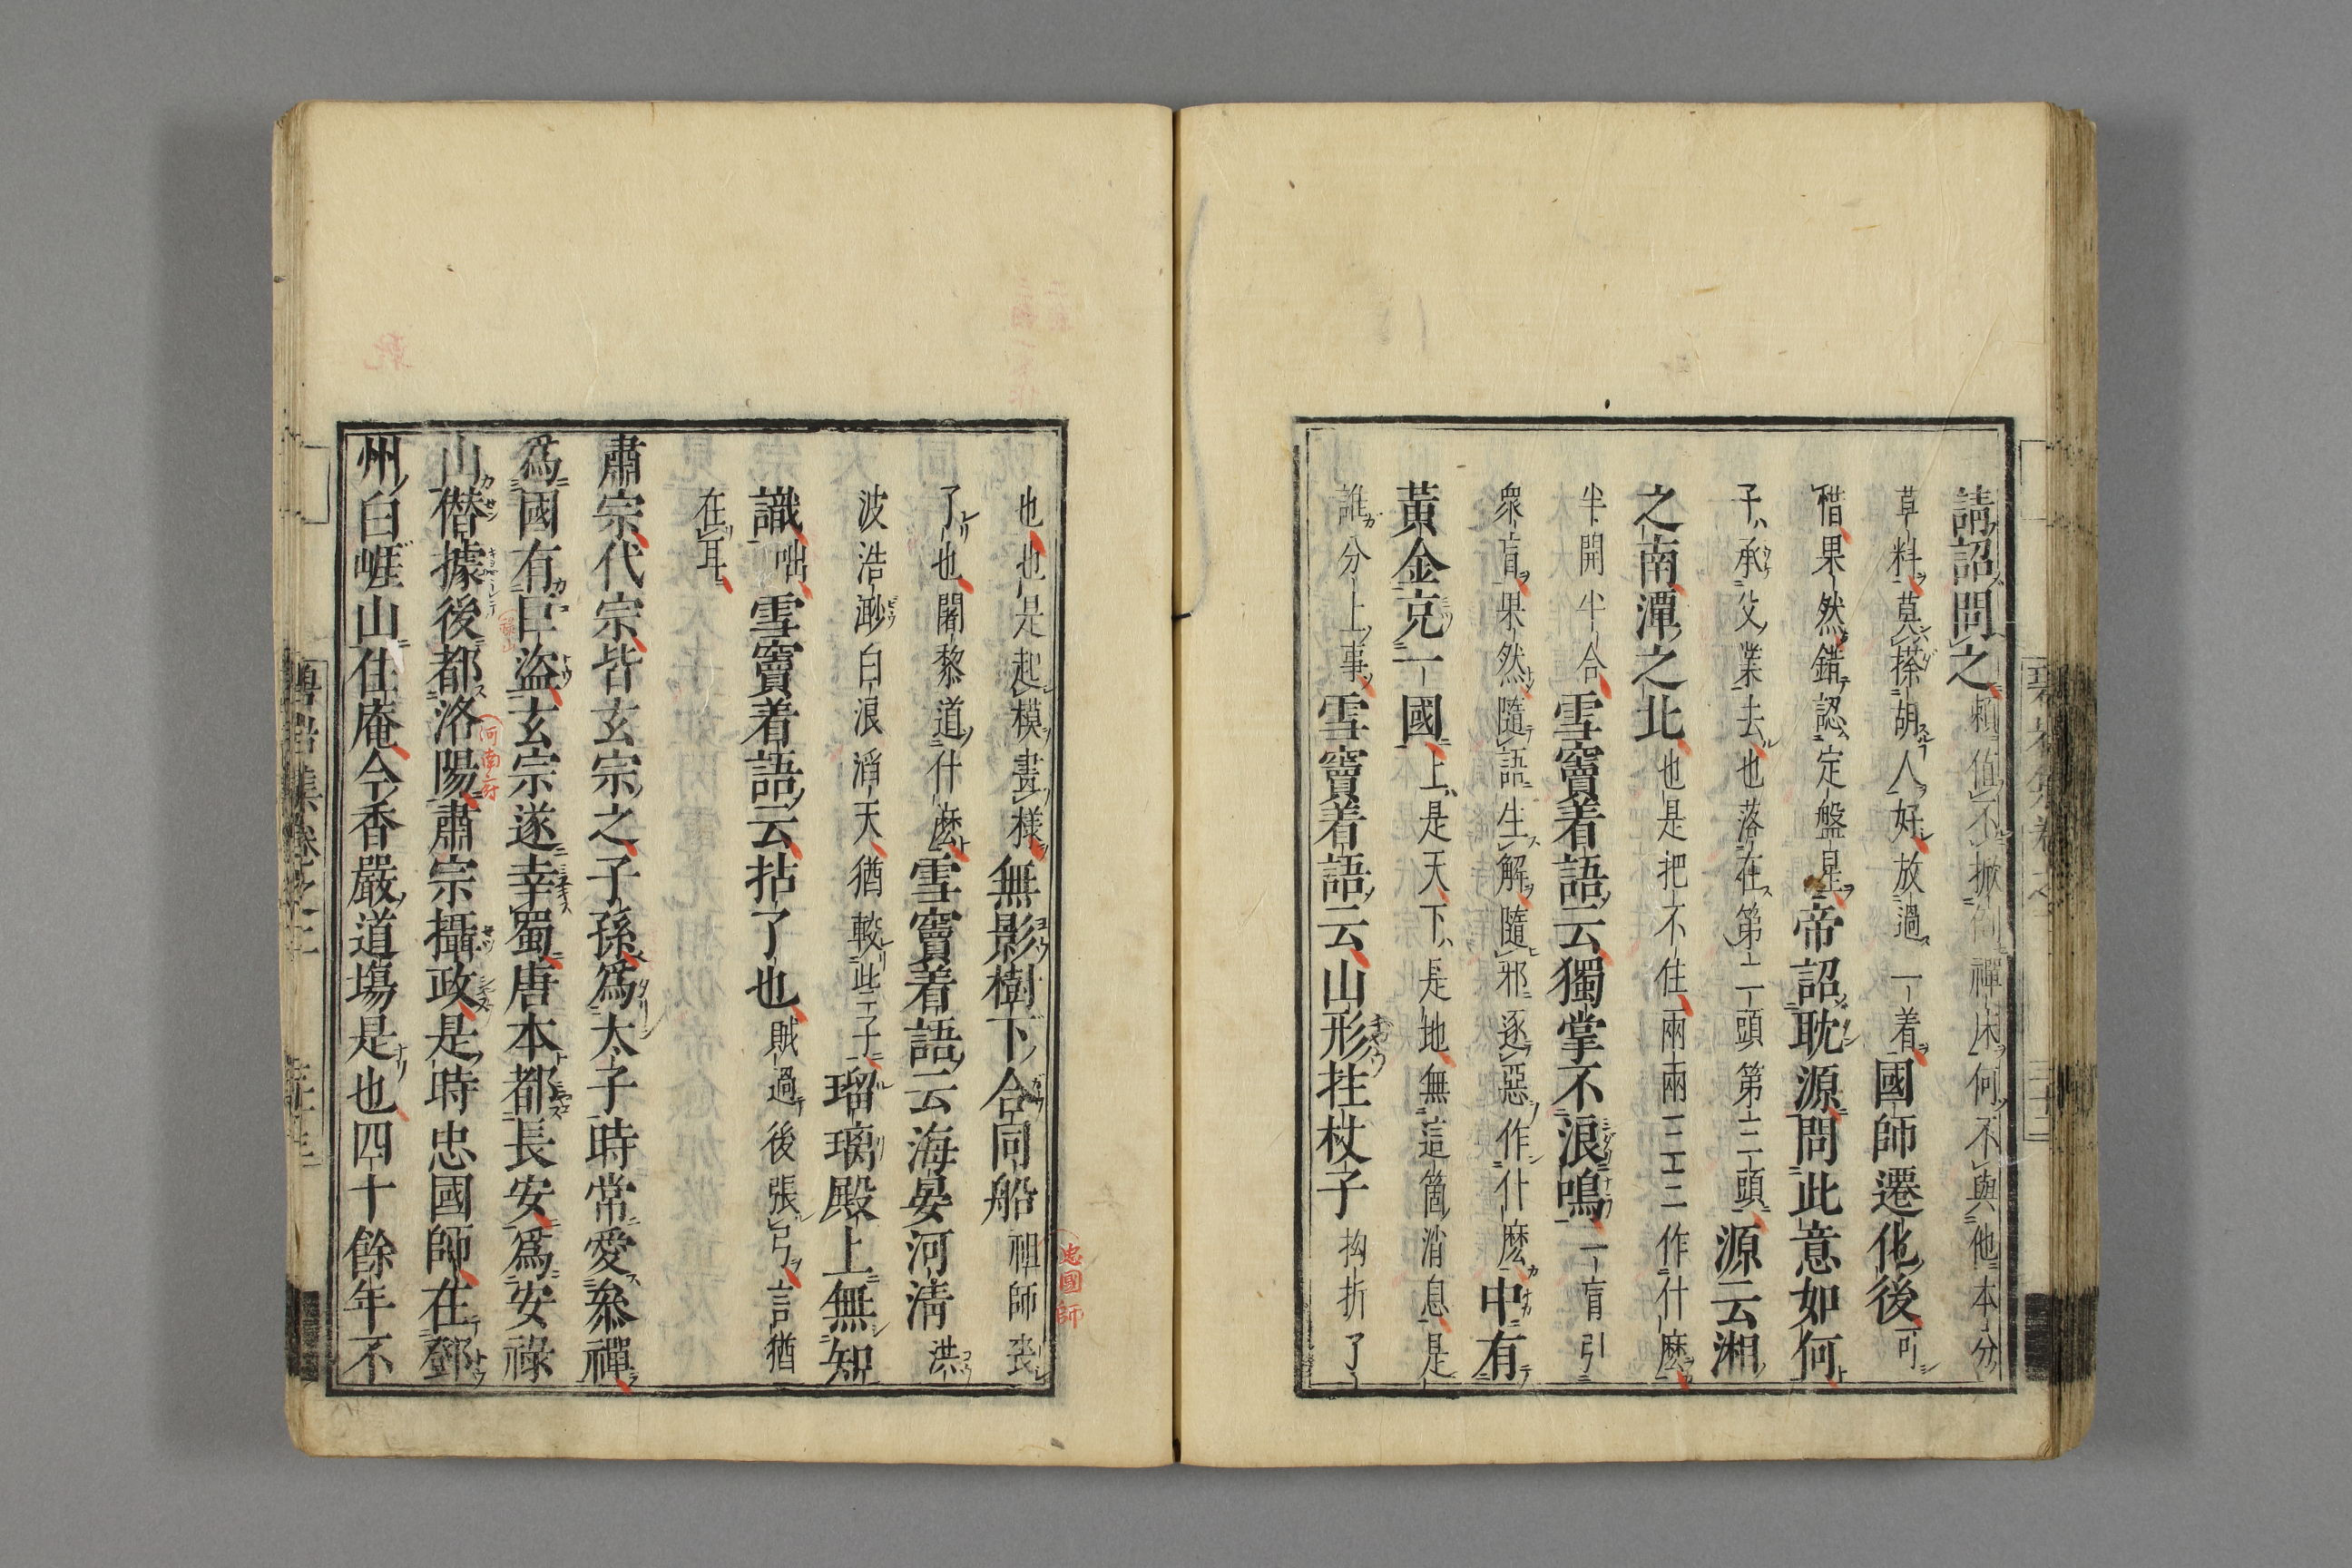 請詔問之賴值不掀倒禪床何不與他本分
草料莫搽胡人好放過一着國師遷化後可
惜果然錯認定盤星帝詔耽源問此意如何
子承父業去也落在第二頭第三頭源云湘
之南潭之北也是把不住兩兩三三作什麽
半開半合雪竇着語云獨掌不浪鳴一盲引
衆盲果然隨語生解隨邪逐惡作什麽中有
黃金充一國上是天下是地無這箇消息是
誰分上事雪竇着語云山形拄杖子拗折了
也也是起模畫樣無影樹下合同船祖師喪
了也闍黎道什麽雪竇着語云海晏河清洪
波浩渺白浪滔天猶較些子瑠璃殿上無知
識咄雪竇着語云拈了也賊過後張弓言猶
在耳
肅宗代宗皆玄宗之子孫爲太子時常愛參禪
爲國有巨盜玄宗遂幸蜀唐本都長安爲安祿
山僭據後都洛陽肅宗攝政是時忠國師在鄧
州白崖山住庵今香嚴道塲是也四十餘年不
忠國師
祿山
河南府
碧岩集卷之二